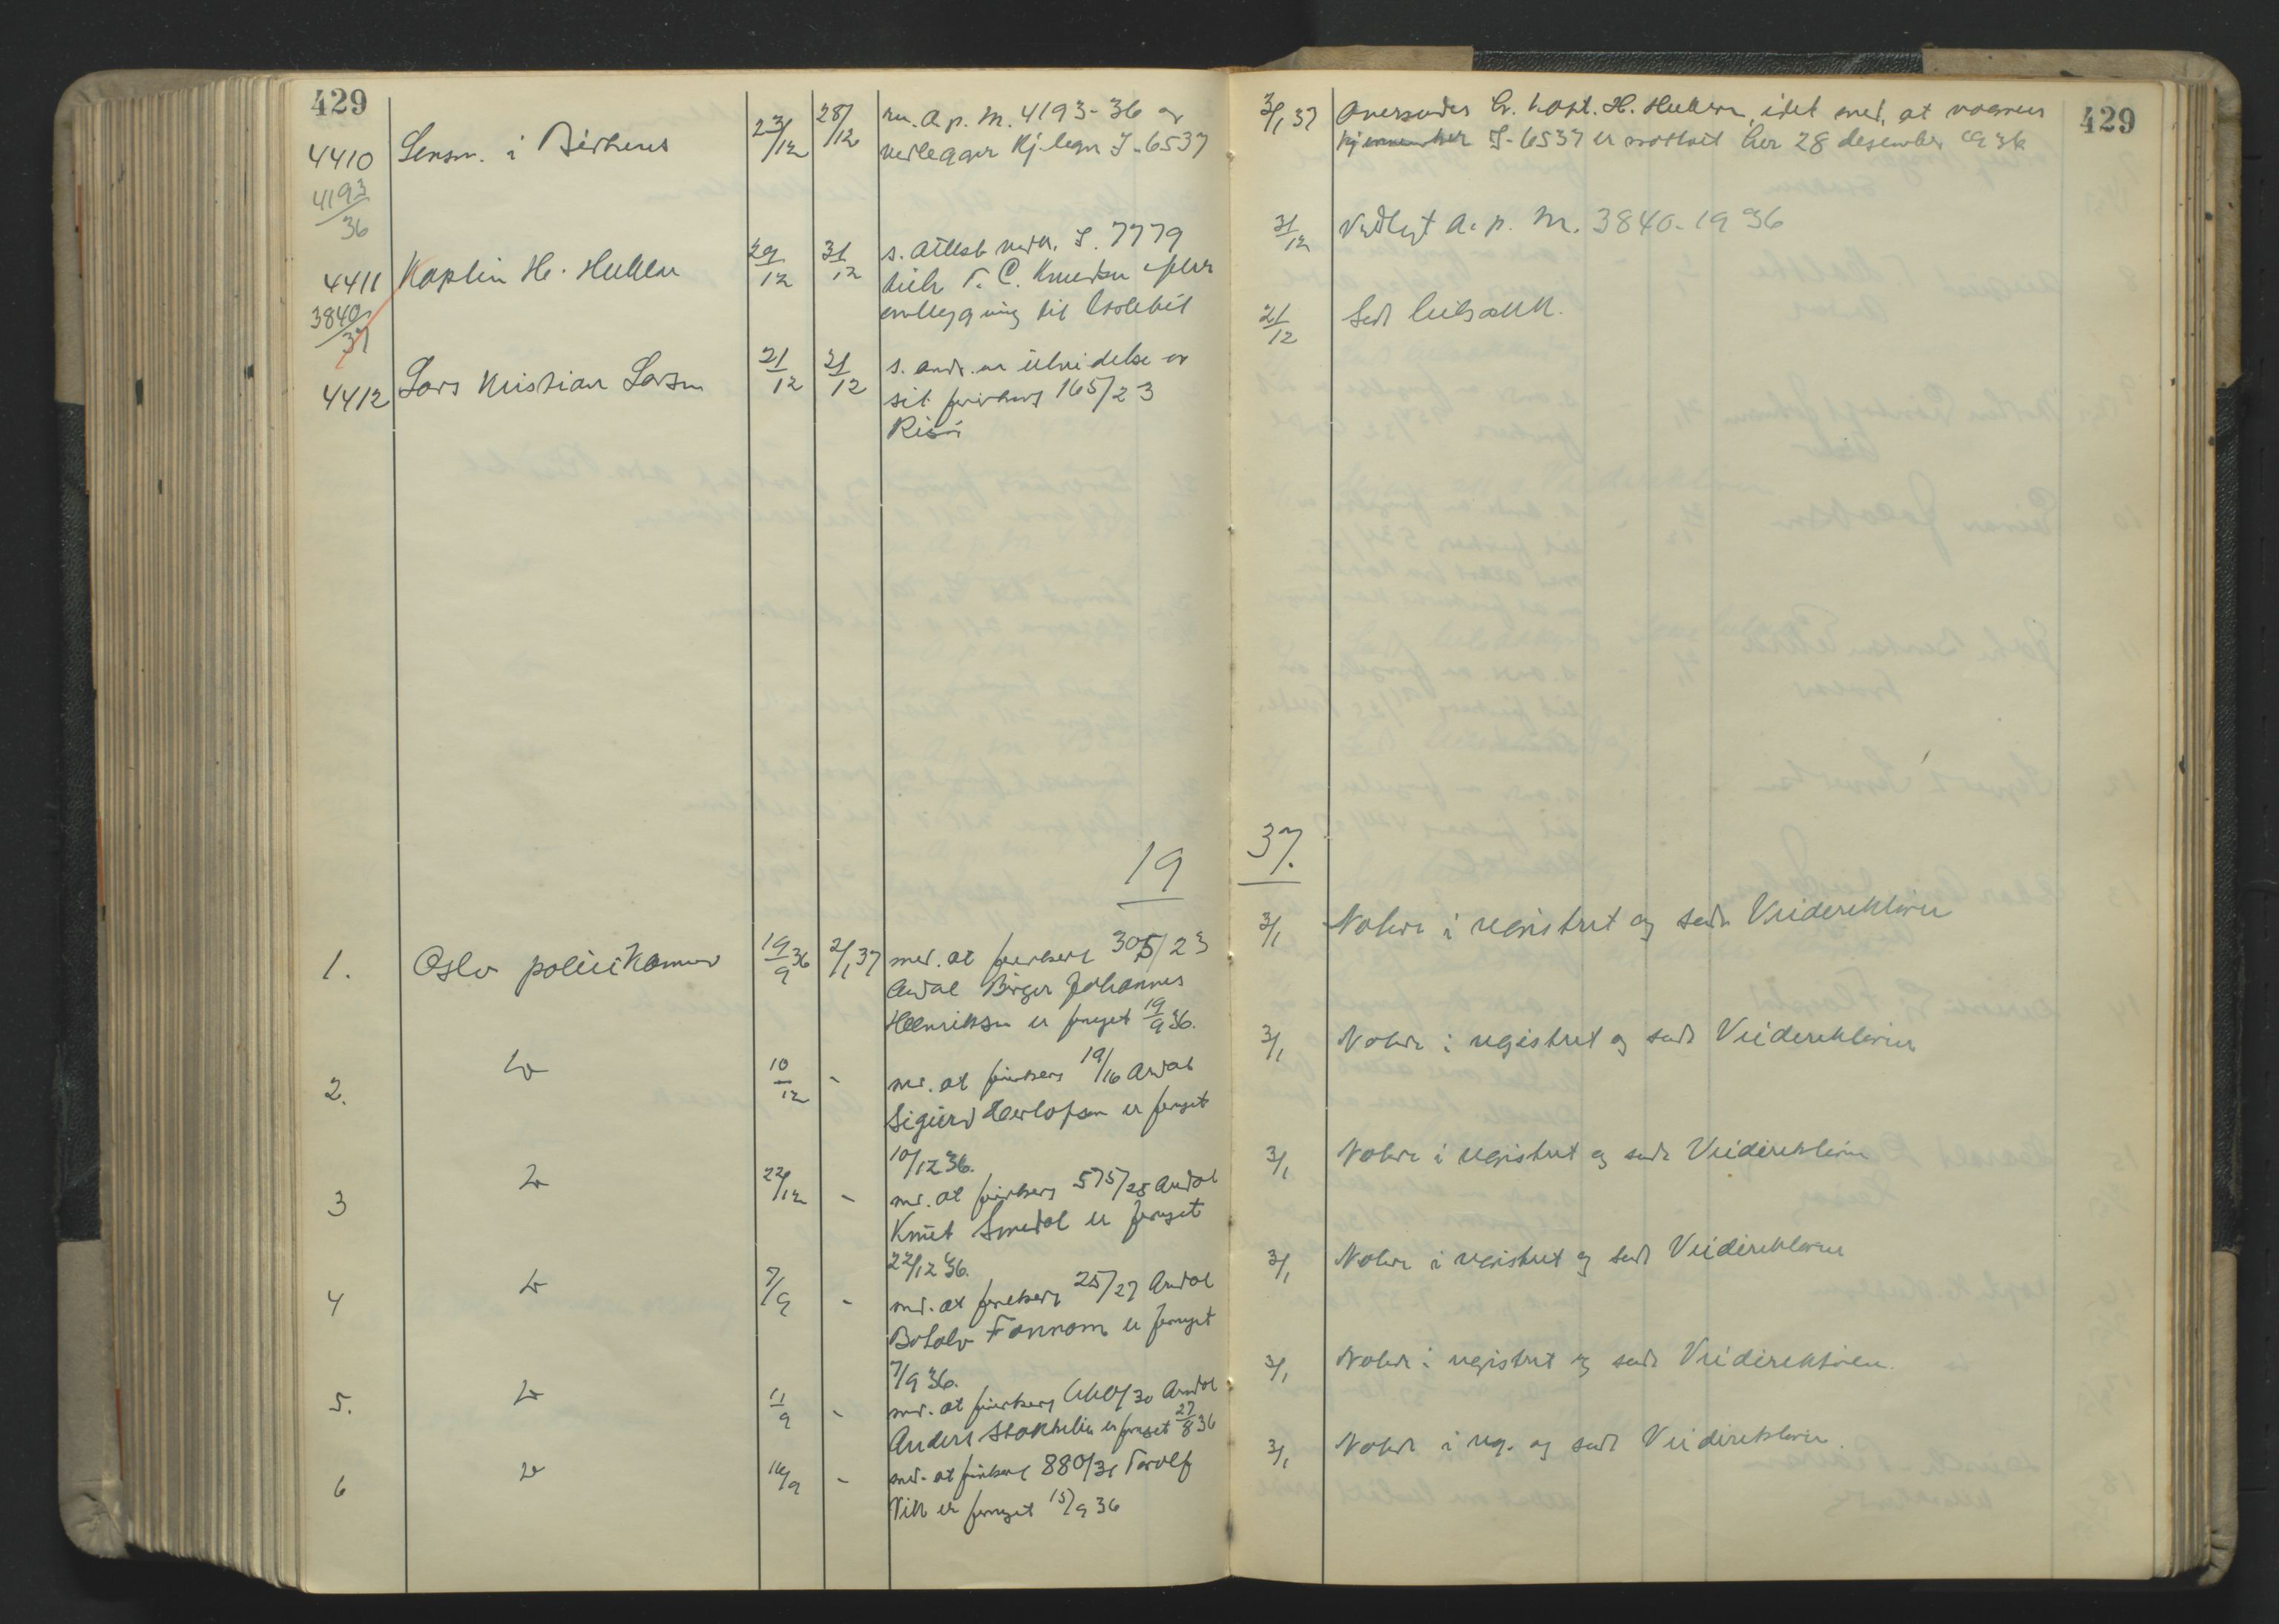 429
4410 Lensm. i Birkenes 23/12 28/12 ru. a p. M. 4193-36 og
vedlegger kj.tegn I-6537
4193/36
4411 Kaptein H. Hullen 29/12 31/12 s. attest verdr. I. 7779
T. C. Knudsen efter
omlegging til
3840/37
4412 Lars Kristian Larsen 21/12 31/12 s. andr. om utvidelse av
sit førerbevis 165/23
Risør
19
1. Oslo politikammer 19/9 36 2/1 37 med. at førerbevis 305/23
Arendal Birger Johannes
Henriksen er fornyet 19/9 36.
2. do 10/12 - med. at førerbevis 19/16 Arendal
Sigurd Herlofsen er fornyet
10/12 36.
3 do 22/12 - med. at førerbevis 575/25 Arendal
Knut Smedal er fornyet
22/12 36.
4 do 7/9 - med. at førerbevis 25/27 Arendal
Botolv er fornyet
7/9 36.
5. do 11/9 - med. at førerbevis /30 Arendal
Anders er fornyet 27/8 36
6 do 16/9 - med. at førerbevis 880/31 Torolf
Vik er fornyet 15/9 36
429
3/1 37 Oversendes hr. kapt. H. Hullen, idet med. at vognens
kjennemerker I-6537 er mottatt her 28 desember 1936
31/12 Vedlagt a. p. M. 3840-1936
21/12 Sendt
37.
3/1 Notert i registret og sendt Veidirektøren
3/1 Notert i registret og sendt Veidirektøren
3/1 Notert i registret og sendt Veidirektøren
3/1 Notert i registret og sendt Veidirektøren
3/1 Notert i registret og sendt Veidirektøren.
3/1 Notert i reg. og sendt Veidirektøren.